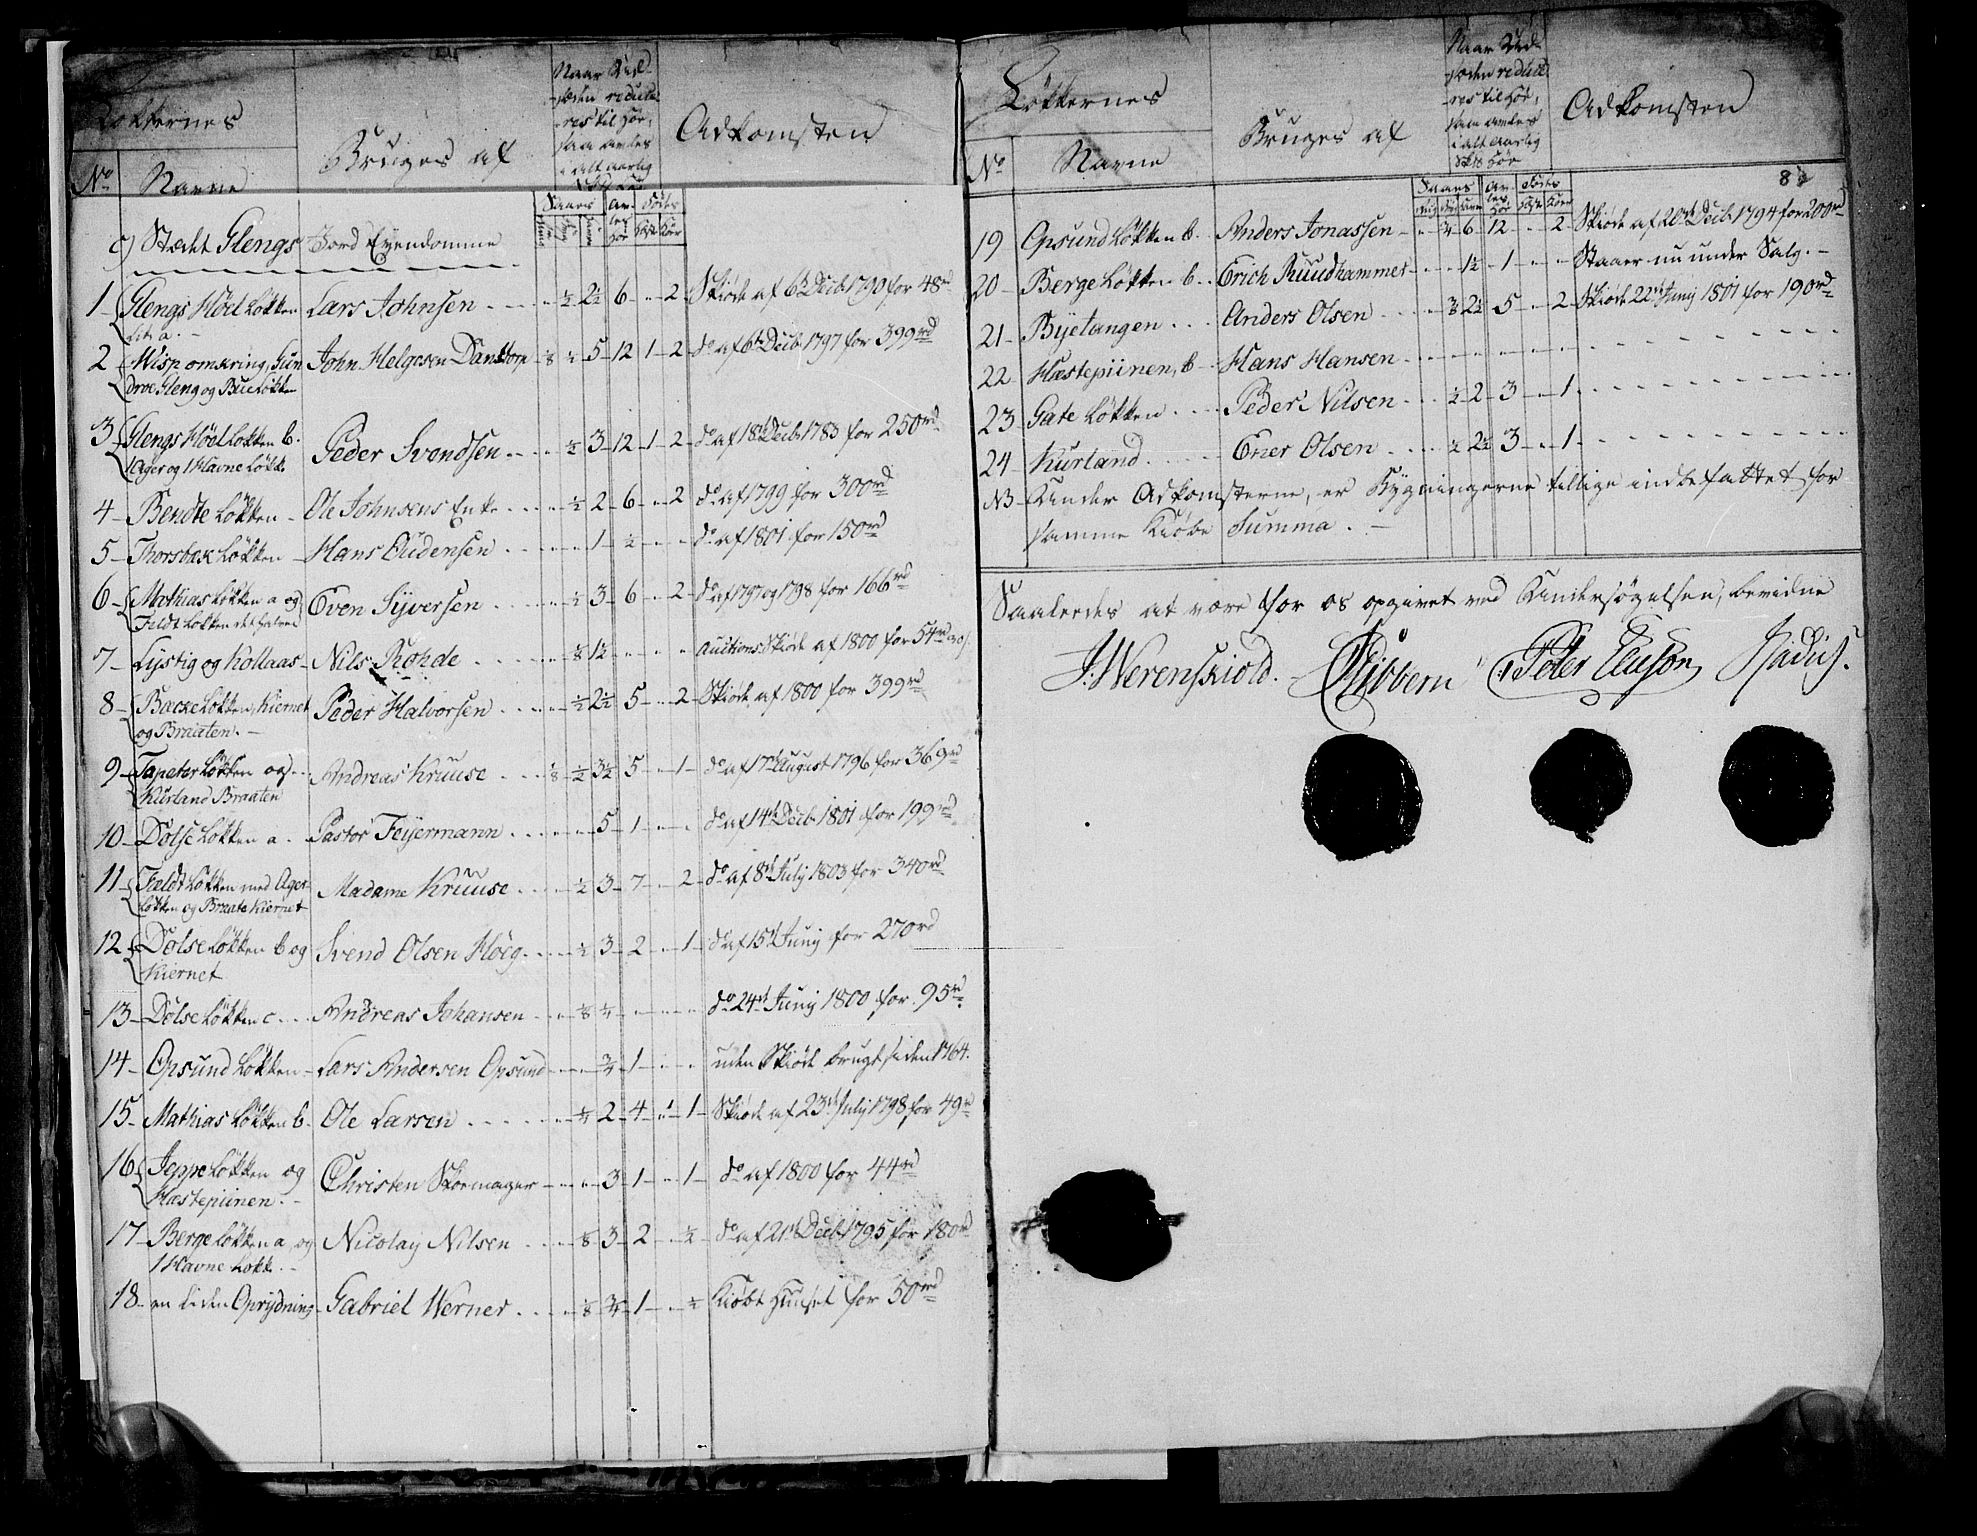 Løkkernes
No
Navne
Bruges af
Naar Udsæden reduceres til Hør, saa avles i alt aarlig
Adkomsten
Saaes
Avles Hør
Fødes
Heste Kiør
c) Stædet Glengs Jord Eyendomme
1 Glengs Høel Løkken Lit: a. Lars Johnsen ½ 2½ 6 2 Skiøde af 6t Decb 1790 for 48rd
2 Wisp omkring, Sundroe, Gleng og Bue Løkken John Helgesen Danstorp 1/8 ½ 5 12 1 2 do af 6t Decb 1797 for 399rd
3 Glengs Høel Løkken b. 1 Ager og 1 Havne Løkke Peder Svendsen ½ 3 12 1 2 do af 18t Decb 1783 for 250rd
4 Bendte Løkken Ole Johnsens Enke ½ 2 6 2 do af 1799 for 300rd
5 Thorsbak Løkken Hans Oudensen 1 ½ do af 1801 for 150rd
6 Mathias Løkken a og Feldt Løkken det halve Even Syversen ½ 3 6 2 do af 1797 og 1798 for 166rd
7 Lystig og Kollaas Nils Rohde 1/8 1½ Auctions Skiøde af 1800 for 54rd
8 Backe Løkken, Kiernet og Braaten. Peder Halvorsen ½ 2½ 5 2 Skiøde af 1800 for 399rd
9 Tapeter Løkken og Kurland Braaten Andreas Kruuse 1/8 ½ 3½ 5 1 do af 17t August 1796 for 369rd
10 Dølse Løkken a. Pastor Feyermann 5 1 do af 14t Decb 1801 for 199rd
11 Fældt Løkken med Ager Løkken og Braate Kiernet Madame Kruuse ½ 3 7 2 do af 8t July 1803 for 340rd
12 Dolse Løkken b og Kiernet Svend Olsen Høeg ½ 3 2 1 do af 15t Juny for 270rd
13 Dolse Løkken c Andreas Johansen 1/8 ¾ do 24t Juny 1800 for 95rd
14 Opsund Løkken Lars Andersen Opsund ¾ 1 uden Skiøde brugt siden 1764.
15 Mathias Løkken b. Ole Larsen ¾ 2 4 1 Skiøde af 23t July 1798 for 49rd
16 Jeppe Løkken og Hæstepiinen. Christen Skoemager 3 1 1 do af 1800 for 44rd
17 Berge Løkken a, og 1 Havne Løkk. Nicolay Nilsen 1/8 3 2 ½ do af 21t Decb 1795 for 180rd
18 en liden Oprydning Gabriel Werner 1/8 ¾ 1 ½ Kiøbt Huuset for 50rd
Løkkernes
No
Navne
Bruges af
Naar Udsæden reduceres til Hør, saa avles i alt aarlig Skp Hør
Adkomsten
8
Saaes
Avles Hør
Fødes
Heste Kiør
19 Opsund Løkken b. Anders Jonassen ¾ 6 12 2 Skiøde af 20t Decb 1794 for 200rd
20 Berge Løkken b. Erich Ruudhammer 1½ 1 Staaer nu under Salg.
21 Byetangen Anders Olsen 2½ 5 2 Skiøde 22t Juny 1801 for 190rd
22 Hæstepiinen, b Hans Hansen
23 Gate Løkken Peder Nilsen ½ 2 3 1
24 Kurland Ener Olsen ½ 2½ 3 1
NB Under Adkomsterne, er Bygningerne tillige indbefattet for
samme Kiøbe Summa.
Saaledes at være for os opgivet ved Undersøgelsen, bevidne
J. Werenskiold. Sibbern Peter Elieson Radich.